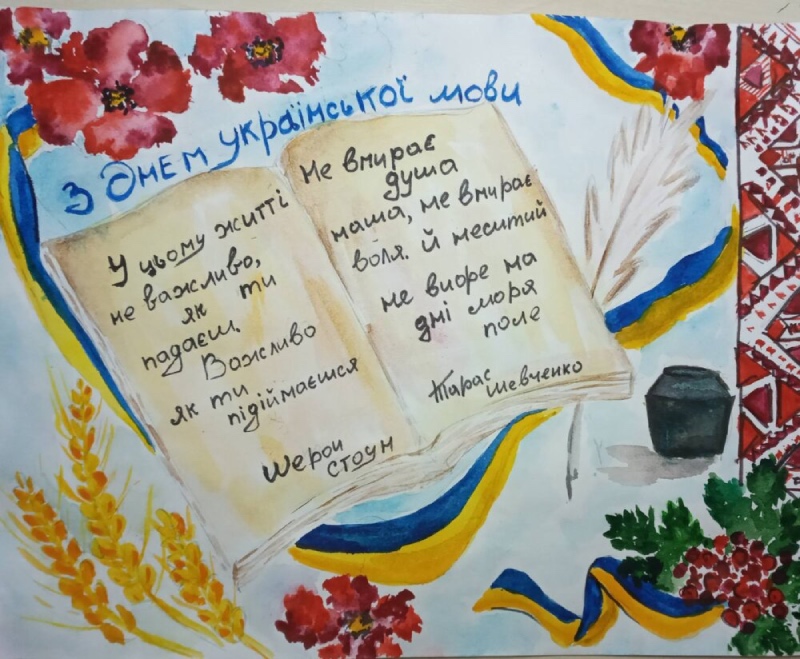 З Днем української мови
У цьому житті
не важливо,
як ти
падаєш.
Важливо
як ти
підіймаєшся
Шерон
стоун
Не вмирає
душа
наша, не вмирає
воля. Й неситий
не виоре на
дні моря
поле
Тарас
Шевченко